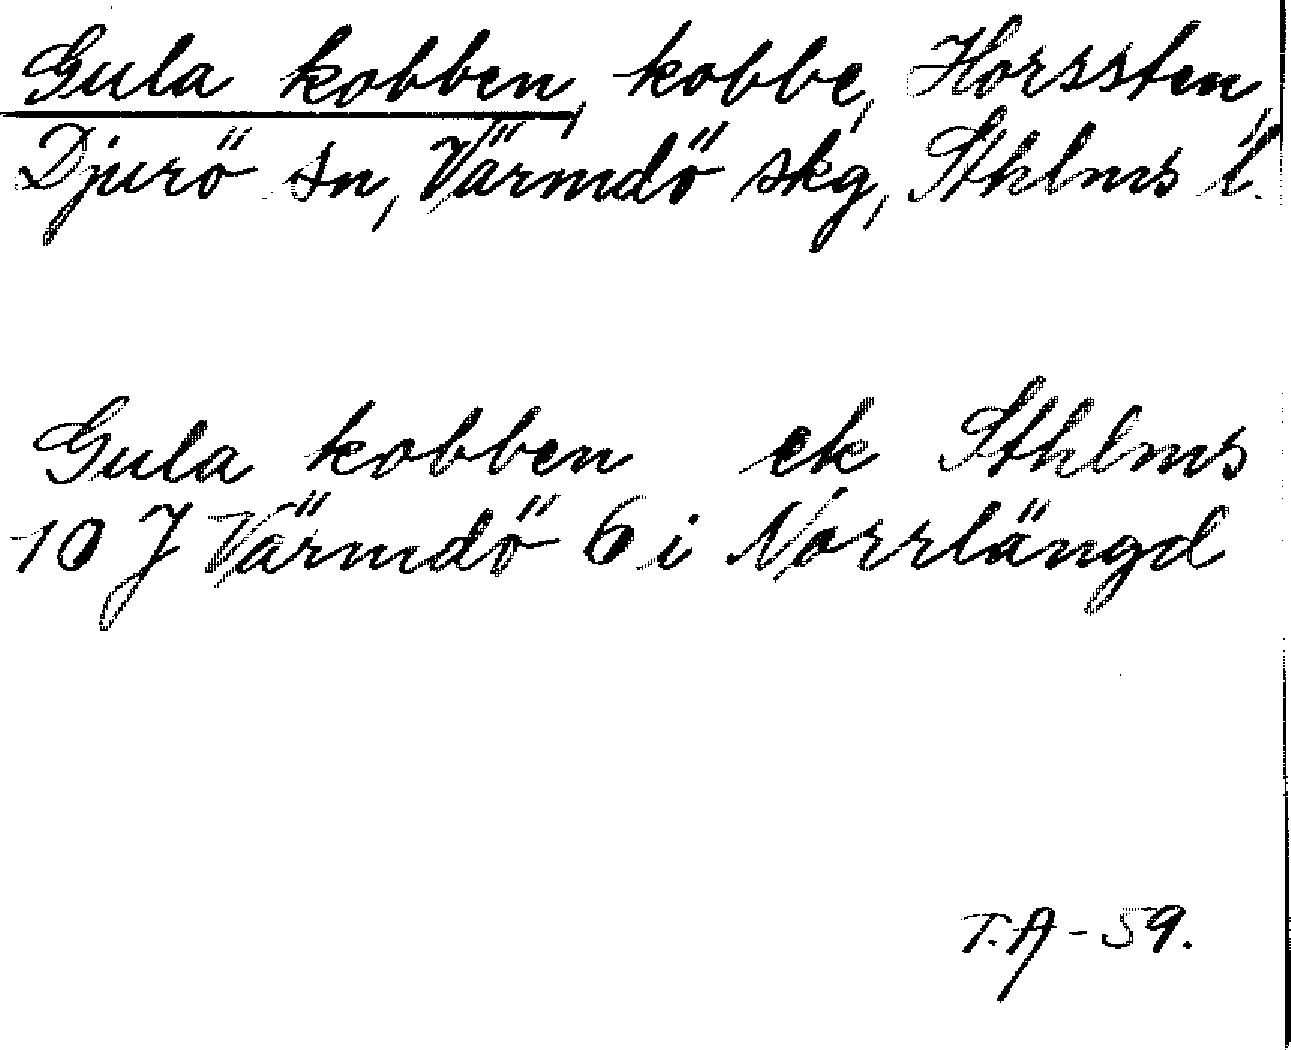 Gula kobben, kobbe, Horssten,
Djurö sn, Värmdö skg, Sthlms l.
Gula kobben ek Sthlms
10 J Värmdö 6 i Norrlängd
T.A - 59.